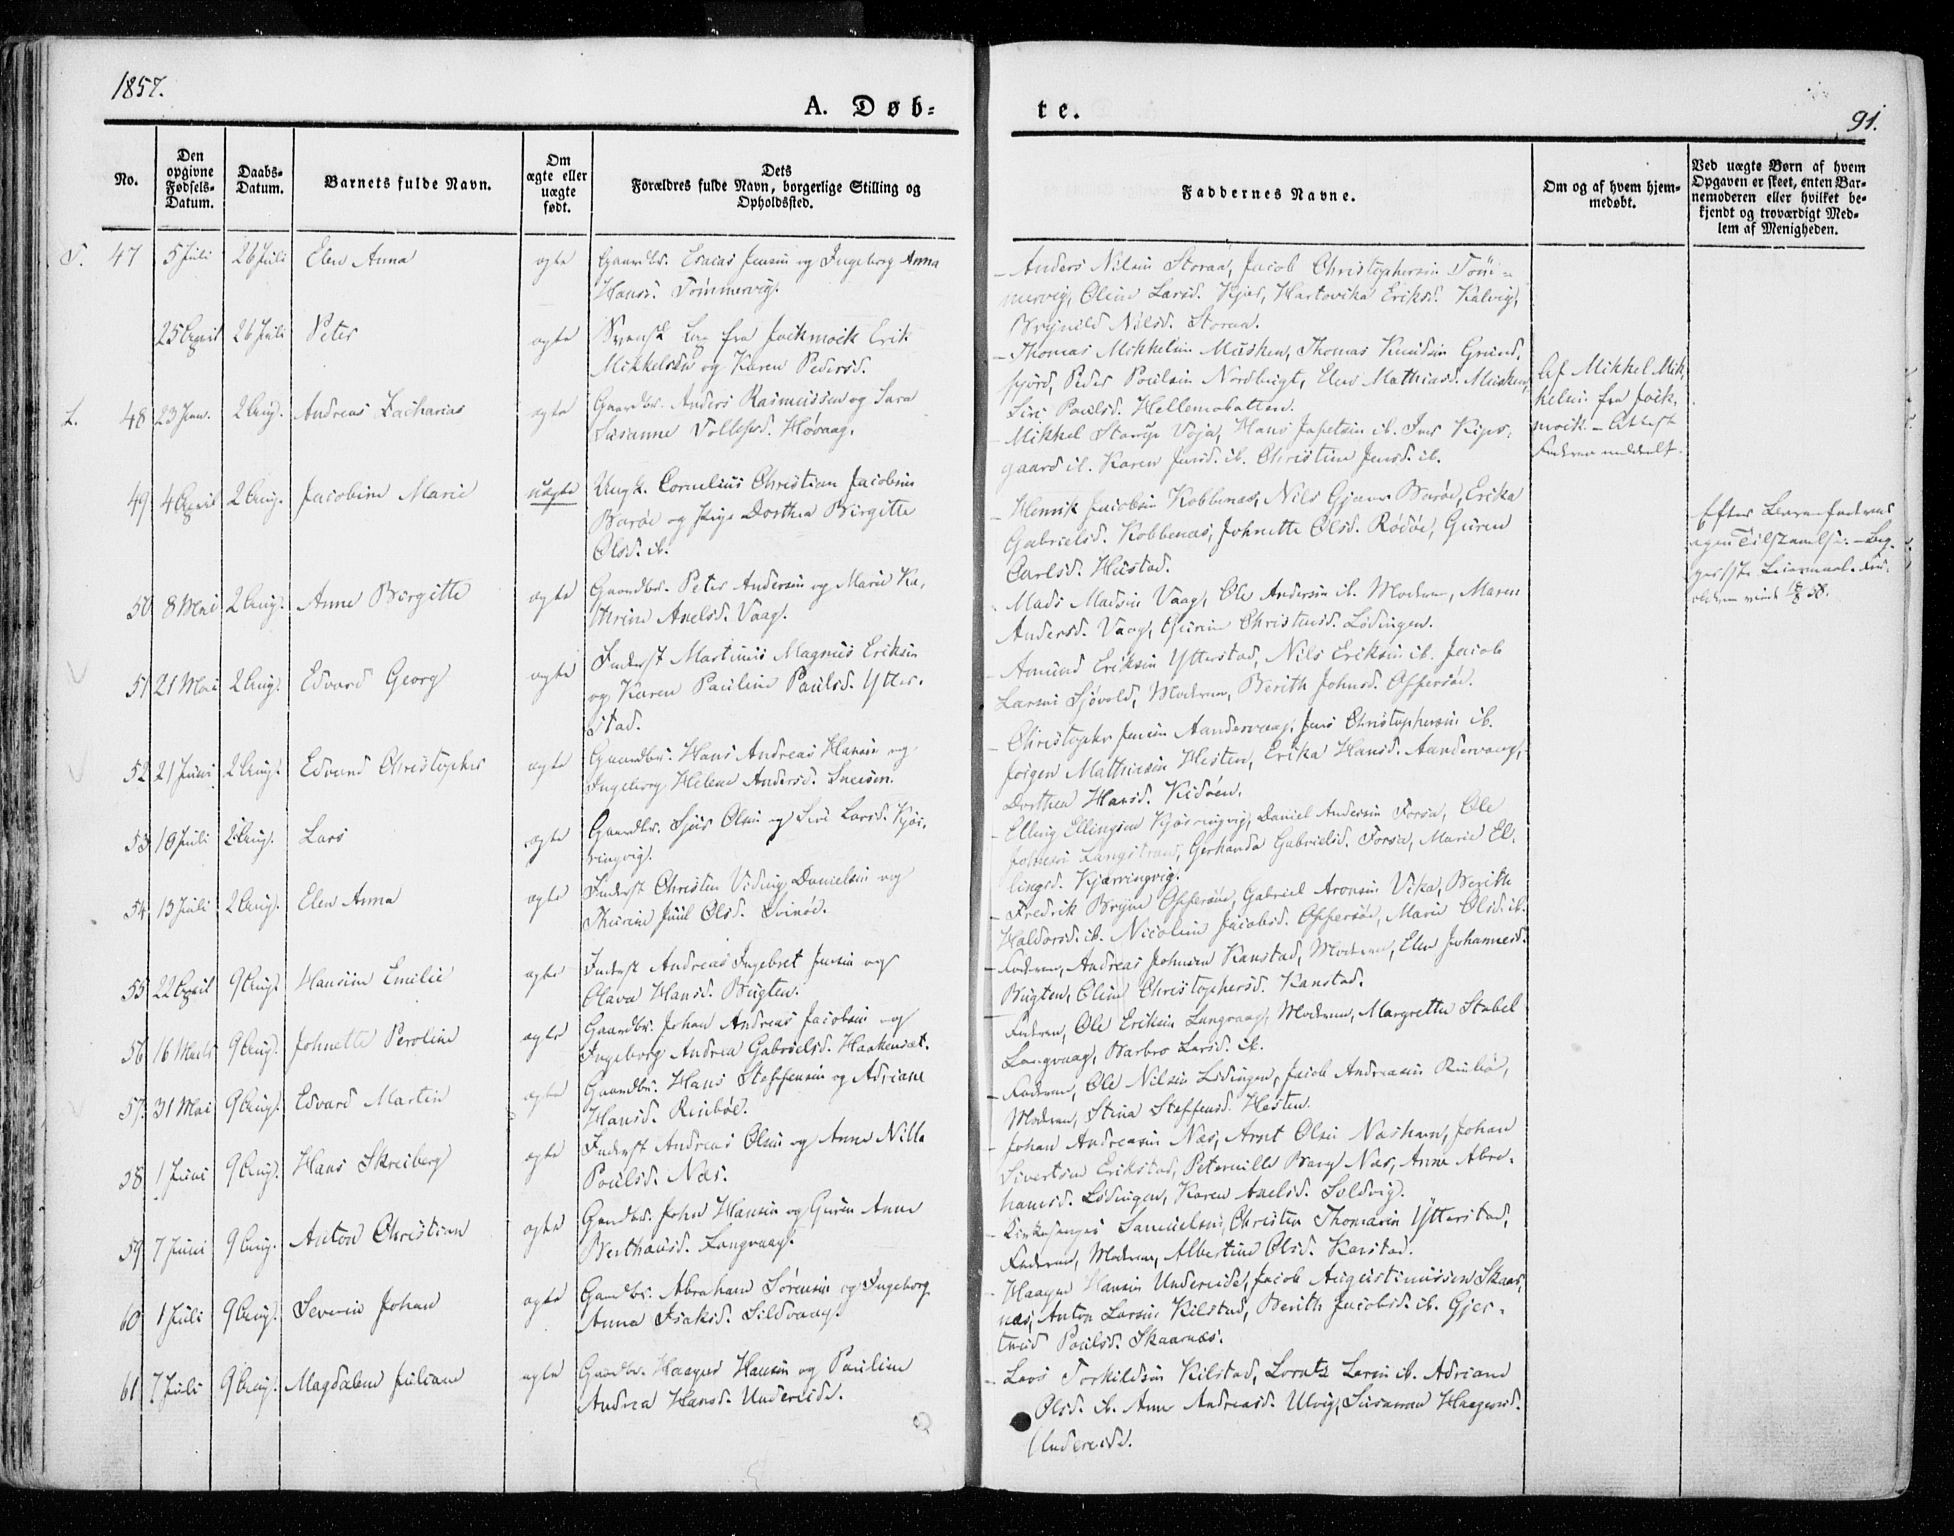 1857.
A. Døb-
te.
91.
No.
Den opgivne Fødsels-Datum.
Daabs-Datum.
Barnets fulde Navn.
Om ægte eller uægte født.
Dets Forældres fulde Navn, borgerlige Stilling og Opholdssted.
Faddernes Navne.
Om og af hvem hjem-medøbt.
Ved uægte Børn af hvem Opgaven er skeet, enten Bar-nemoderen eller hvilket be-kjendt og troværdigt Med-lem af Menigheden.
T. 47 5 Juli 26 Juli Elen Anna ægte Gaardbr. Esaias Jensen og Ingeborg Anna
Hansd. Tømmervig.
Anders Nilsen Storaa, Jacob Christophersen Tøm-
mervig, Oline Larsd. Hartvika Eriksd. Kalvig,
Brynild Nilsd. Storaa.
25 April 26 Juli Peter ægte Svensk Lap fra Jockmock Erik
Mikkelsen og Karen Pedersd.
Thomas Mikkelsen Musken, Thomas Knudsen Grund-
fjord, Peder Poulsen Nordbugt, Elen Mathiasd. Musken,
Siri Poulsd. Hellemobotten.
Af Mikkel Mik-
kelsen fra Jock-
mock. - Attest
Faderen meddeelt.
L. 48 23 Jan. 2 Aug. Andreas Zacharias ægte Gaardbr. Anders Rasmussen og Sara
Susanne Tollefsd. Høvaag.
Mikkel Voja, Hans Japetsen ib. Jens Kips-
gaard ib. Karen Jensd. ib. Christine Jensd. ib.
49 4 April 2 Aug. Jacobine Marie uægte Ungk. Cornelius Christian Jacobsen
Barøe og Pige Dorthea Birgitte
Olsd. ib.
Henrik Jacobsen Kobbenæs, Nils Barøe, Erika
Gabrielsd. Kobbenæs, Johnette Olsd. Rødøe, Guren
Carlsd. Hustad.
Efter Barnefaderens
egen Tilstaaelse. -
Leiermaal.
50 8 Mai 2 Aug. Anne Birgitte ægte Gaardbr. Peter Andersen og Marie Ka-
thrine Axelsd. Vaag.
Mads Madsen Vaag, Ole Andersen ib. Moderen, Maren
Andersd. Vaag, Guren Christensd. Lødingen.
51 21 Mai 2 Aug. Edvard Georg ægte Inderst Martinus Magnus Eriksen
og Karen Pauline Paulsd. Ytter-
stad.
Amund Eriksen Ytterstad, Nils Eriksen ib. Jacob
Larsen Sjøvold, Moderen, Berith Johnsd. Offersøe.
52 21 Juni 2 Aug. Edvard Christopher ægte Gaardbr. Hans Andreas Hansen og
Ingeborg Helene Andersd. Sneisen.
Christopher Jensen Aandervaag, Jens Christophersen ib.
Jørgen Mathiesen Hesten, Erika Hansd. Aandervaag,
Dorthea Hansd. Kidøen.
53 10 Juli 2 Aug. Lars ægte Gaardbr. Sjur Olsen og Siri Larsd. Kjær-
ringvig.
Elling Ellingsen Kjærringvig, Daniel Andersen Forsa, Ole
Johnsen Langstrand, Gerharda Gabrielsd. Forsa, Marie El-
lingsd. Kjærringvig.
54 13 Juli 2 Aug. Elen Anna ægte Inderst Christen Viding Danielsen og
Thrine Juul Olsd. Svinøe.
Fredrik Offersøe, Gabriel Aronsen Vika, Berith
Haldorsd. ib. Nicoline Jacobsd. Offersøe, Marie Olsd. ib.
55 22 April 9 Aug. Hansine Emilie ægte Inderst Andreas Ingebret Jensen og
Olava Hansd. Bugten.
Faderen, Andreas Johnsen Kanstad, Moderen, Elen Johannesd.
Bugten, Oline Christophersd. Kanstad.
56 16 Marts 9 Aug. Johnette Peroline ægte Gaardbr. Johan Andreas Jacobsen og
Ingeborg Andrea Gabrielsd. Haakensæt.
Faderen, Ole Eriksen Langvaag, Moderen, Margrethe Stabel
Langvaag, Barbro Larsd. ib.
57 31 Mai 9 Aug. Edvard Martin ægte Gaardbr. Hans Steffensen og Adriane
Hansd. Rinbøe.
Faderen, Ole Nilsen Lødingen, Jacob Andreasen Rinbø,
Moderen, Stina Steffensd. Hesten.
58 1 Juni 9 Aug. Hans Skreiberg ægte Inderst Andreas Olsen og Anne Nilla
Poulsd. Næs.
Johan Andreasen Næs, Arnt Olsen Næshavn, Johan
Sivertsen Erikstad, Peternille Berg Næs, Anne Abra-
hamsd. Lødingen, Karen Axelsd. Soldvig.
59 7 Juni 9 Aug. Anton Christian ægte Gaardbr. John Hansen og Guren Anne
Berthausd. Langvaag.
Kirkesanger Samuelsen, Christen Thomasen Ytterstad,
Faderen, Moderen, Albertine Olsd. Kanstad.
60 1 Juli 9 Aug. Severin Johan ægte Gaardbr. Abraham Sørensen og Ingeborg
Anna Isaksd. Sildvaag.
Haagen Hansen Undereidet, Jacob Augustinussen Skaar-
næs, Anton Larsen Kilstad, Berith Jacobsd. ib. Gjer-
trud Poulsd. Skaarnæs.
61 7 Juli 9 Aug. Magdalene Juliane ægte Gaardbr. Haagen Hansen og Pauline
Andrea Hansd. Undereidet.
Lars Torkildsen Kilstad, Lorentz Larsen ib. Adriane
Olsd. ib. Anne Andreasd. Ulvig, Susanna Haagensd.
Undereidet.